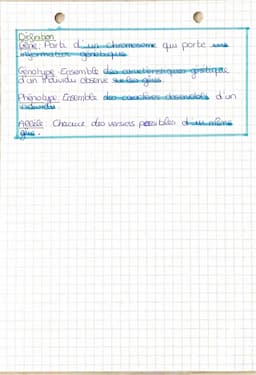 Définition
Gène: Partie d'un chromosome qui porte une
information génétique
Génotype: Ensemble des caractéristiques génétiques
d'un individu observé sur les gènes.
Phénotype: Ensemble des caractères observables d'un
individu
Allèle: Chacune des versions possibles d'un même
gène.